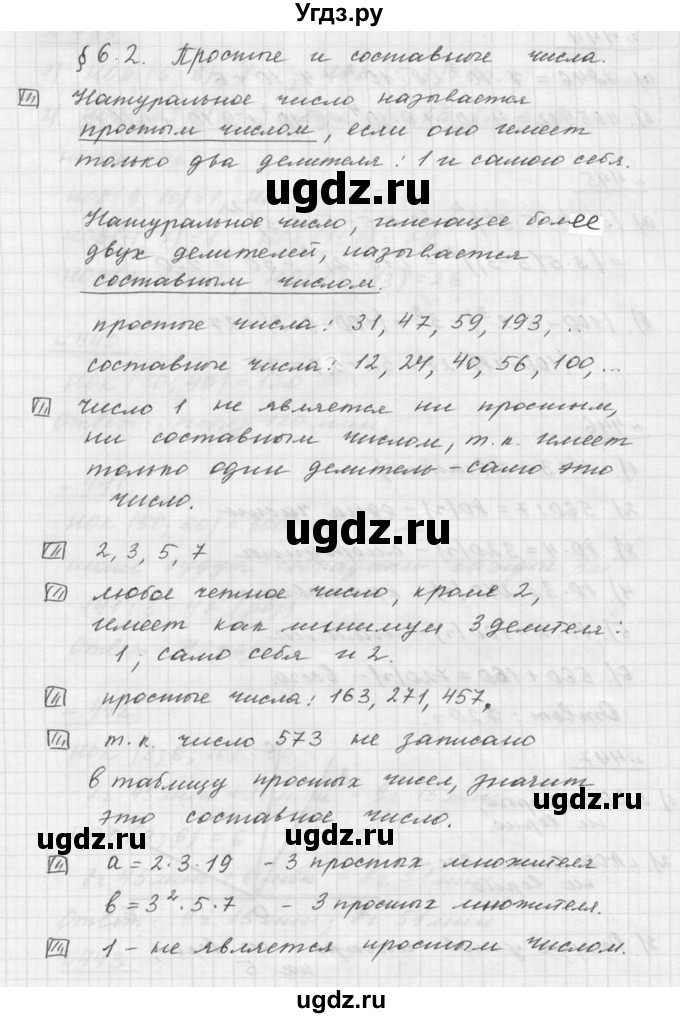 Угдз.ру
§ 6.2. Простые и составные числа.
Натуральное число называется
простым числом, если оно имеет
только два делителя: 1 и самого себя.
ugdz.ru
Натуральное число, имеющее более
двух делителей, называется
составным числом.
простые числа: 31, 47, 59, 193, ...
составные числа: 12, 24, 40, 56, 100, ...
Число 1 не является ни простым,
ни составным числом, т.к. имеет
только один делитель - само это
число.
ugdz.ru
2, 3, 5, 7
любое четное число, кроме 2,
имеет как минимум 3 делителя:
1, само себя и 2.
простые числа: 163, 271, 457.
т.к. число 573 не записано
в таблицу простых чисел, значит
ugdz.ru
это составное число.
ugdz.ru
a = 2·3·19 - 3 простых множителя
b = 3²·5·7 - 3 простых множителя.
ugdz.ru
1 - не является простым числом.
ugdz.ru